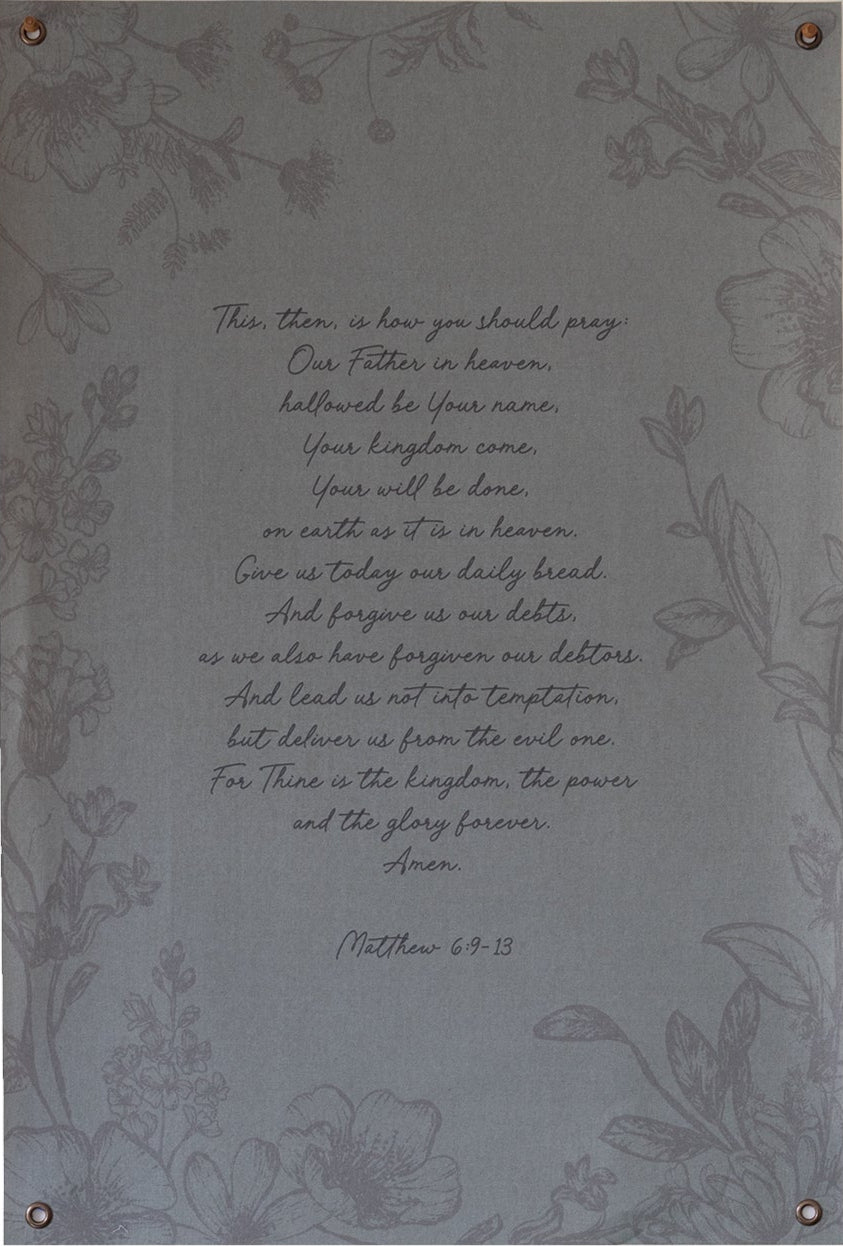 This, then, is how you should pray:
Our Father in heaven,
hallowed be Your name,
Your kingdom come,
Your will be done,
on earth as it is in heaven.
Give us today our daily bread.
And forgive us our debts,
as we also have forgiven our debtors.
And lead us not into temptation,
but deliver us from the evil one.
For Thine is the kingdom, the power
and the glory forever.
Amen.
Matthew 6:9-13